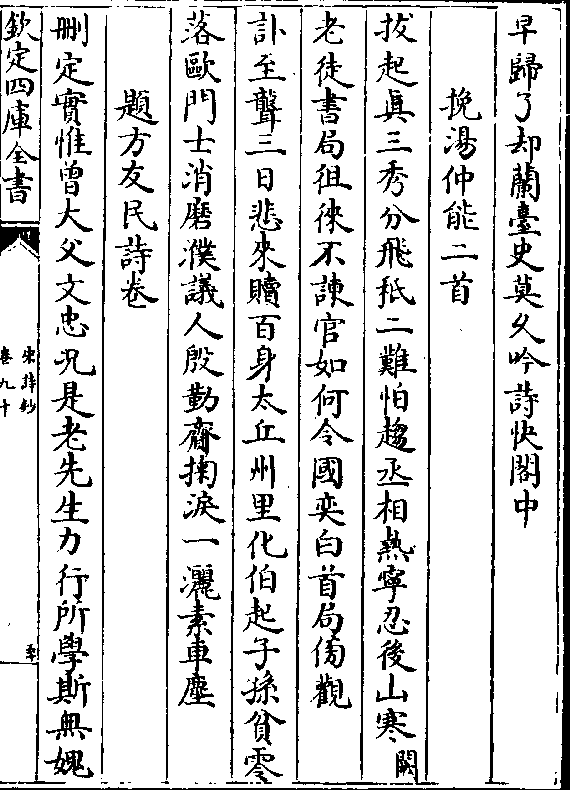 早歸了却蘭臺史莫久吟詩快閣中
挽湯仲能二首
拔起眞三秀分飛秖二難怕趨丞相熱寧忍後山寒闕
老徒書局徂徠不諌官如何令國奕白首局傍觀
訃至聾三日悲來贖百身太丘州里化伯起子孫貧零
落歐門士消磨濮議人殷勤齋掬淚一灑素車塵
題方友民詩卷
刪定實惟曾大父文忠况是老先生力行所學斯無媿
欽定四庫全書
宋詩鈔
卷九十